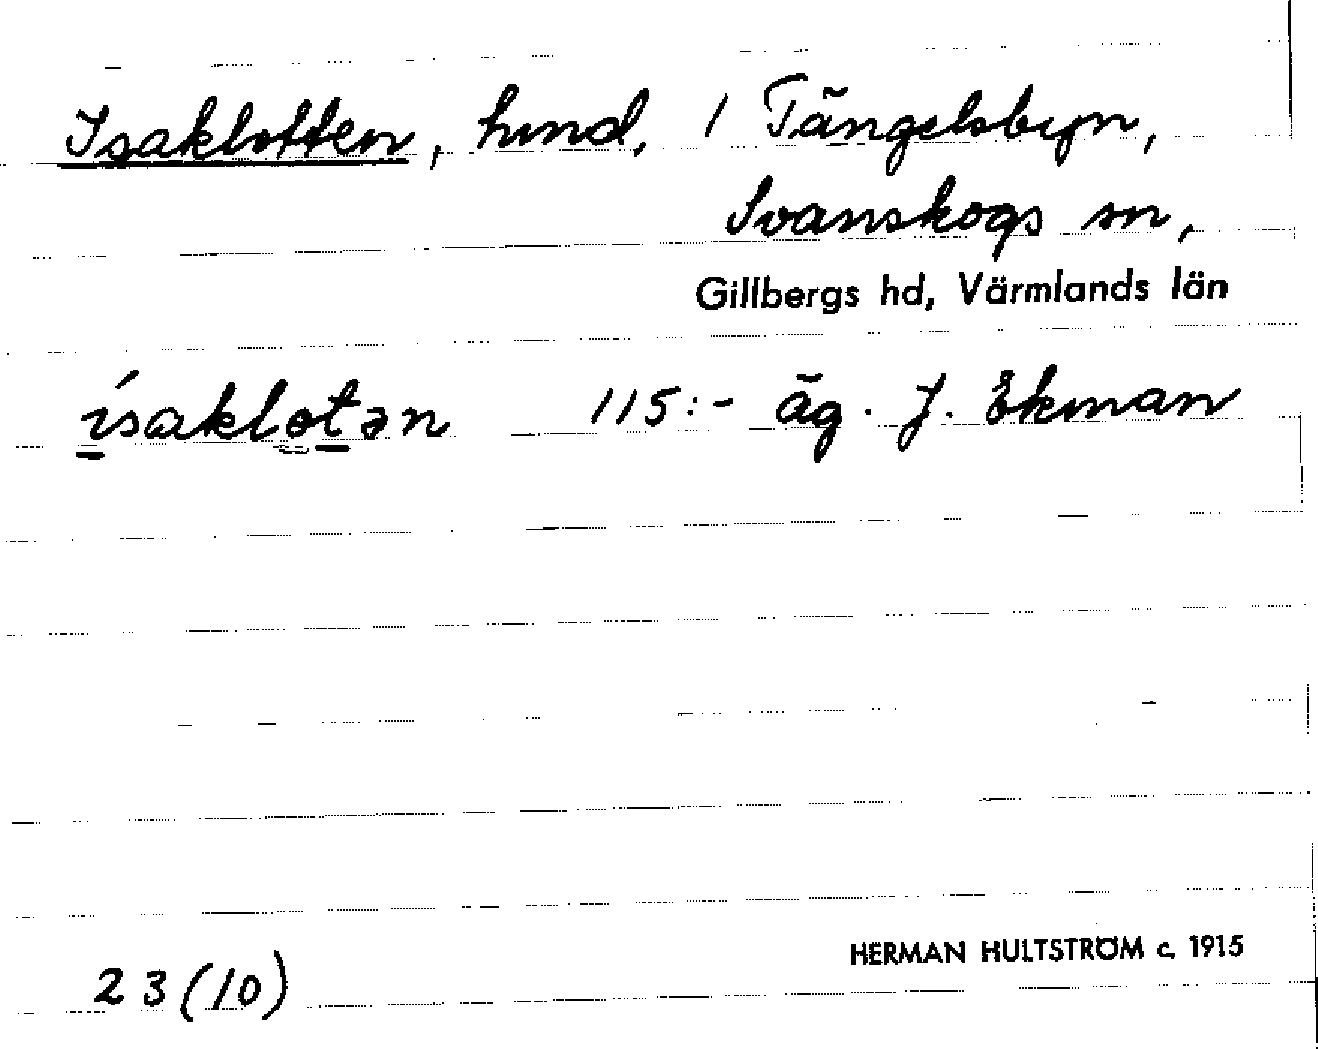 Isaklotten, hmd, 1 Tängelsbyn,
Svanskogs sn,
Gillbergs hd, Värmlands län
ísaklotən 115:- äg. J. Ekman
HERMAN HULTSTRÖM c. 1915
23 (10)